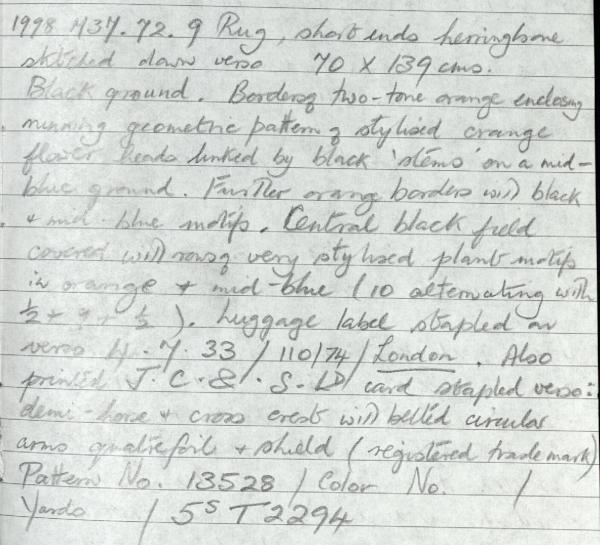 1998 437. 72. 9 Rug, short ends herringbone
stitched down verso 70 x 139 cms.
Black ground. Borders of two-tone orange enclosing
running geometric pattern of stylised orange
flower heads linked by black 'stems' on a mid-
blue ground. Further orange borders with black
+ mid-blue motifs. Central black field
covered with rows of very stylised plant motifs
in orange + mid-blue (10 alternating with
½ + 9 + ½ ). Luggage label stapled on
verso H. 7. 33 / 110/74 / London. Also
printed J. C. & . S. LD card stapled verso:
demi-horse + cross crest with belted circular
arms quatrefoil + shield (registered trademark)
Pattern No. 13528 / Color No. /
Yards / 5S T2294